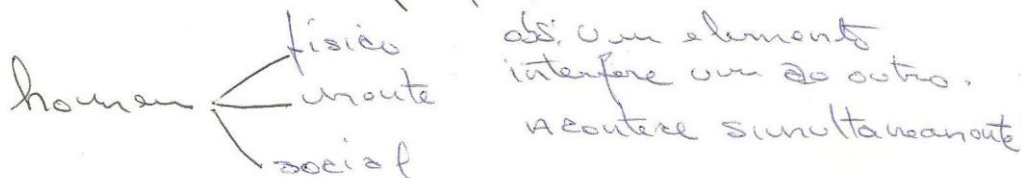 físico
homem mente
social
obs: um elemento
interfere um ao outro.
Acontece simultaneamente